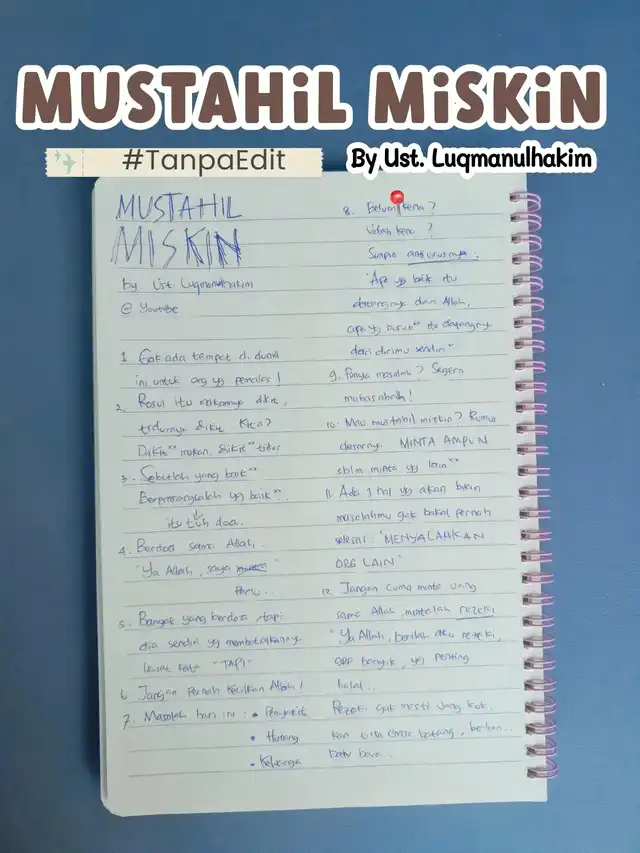 MUSTAHiL MiSKiN
#TanpaEdit
By Ust. Luqmanulhakim
MUSTAHIL
MISKIN
by Ust Luqmanulhakim
@ Youtube
1 Gak ada tempat di dunia
ini untuk org yg pemalas!
2. Rosul itu makannya dikit,
tidurnya dikit. Kita?
Dikit" makan, dikit" tidur
3. Sebutlah yang baik"
Berprasangkalah yg baik".
itu tuh doa.
4. Berdoa sama Allah..
"Ya Allah, saya "
Perlu..
5. Banyak yang berdoa, tapi
dia sendiri yg membatalkannya
lewat kata "TAPI"
6 Jangan Pernah kecilkan Allah!
7. Masalah hari ini : • Penyakit
• Hutang
• Keluarga
8. Belum kena?
Udah kena ?
Siapin antivirusnya.
"Apa yg baik itu
datangnya dari Allah,
apa yg buruk" itu datangny
dari dirimu sendiri"
9. Punya masalah? Segera
muhasabah!
10. Mau mustahil miskin? Rumus
dasarny. MINTA AMPUN
sblm minta yg lain"
11. Ada 3 hal yg akan bikin
masalahmu gak bakal pernah
selesai. "MENYALAHKAN
ORG LAIN"
12 Jangan cuma minta uang
sama Allah, mintalah rezeki
"Ya Allah, berilah aku rezeki,
banyak, yg penting
halal...
Rezeki gak mesti uang kok.
kan bisa emas batang, berlian..
batu bara..